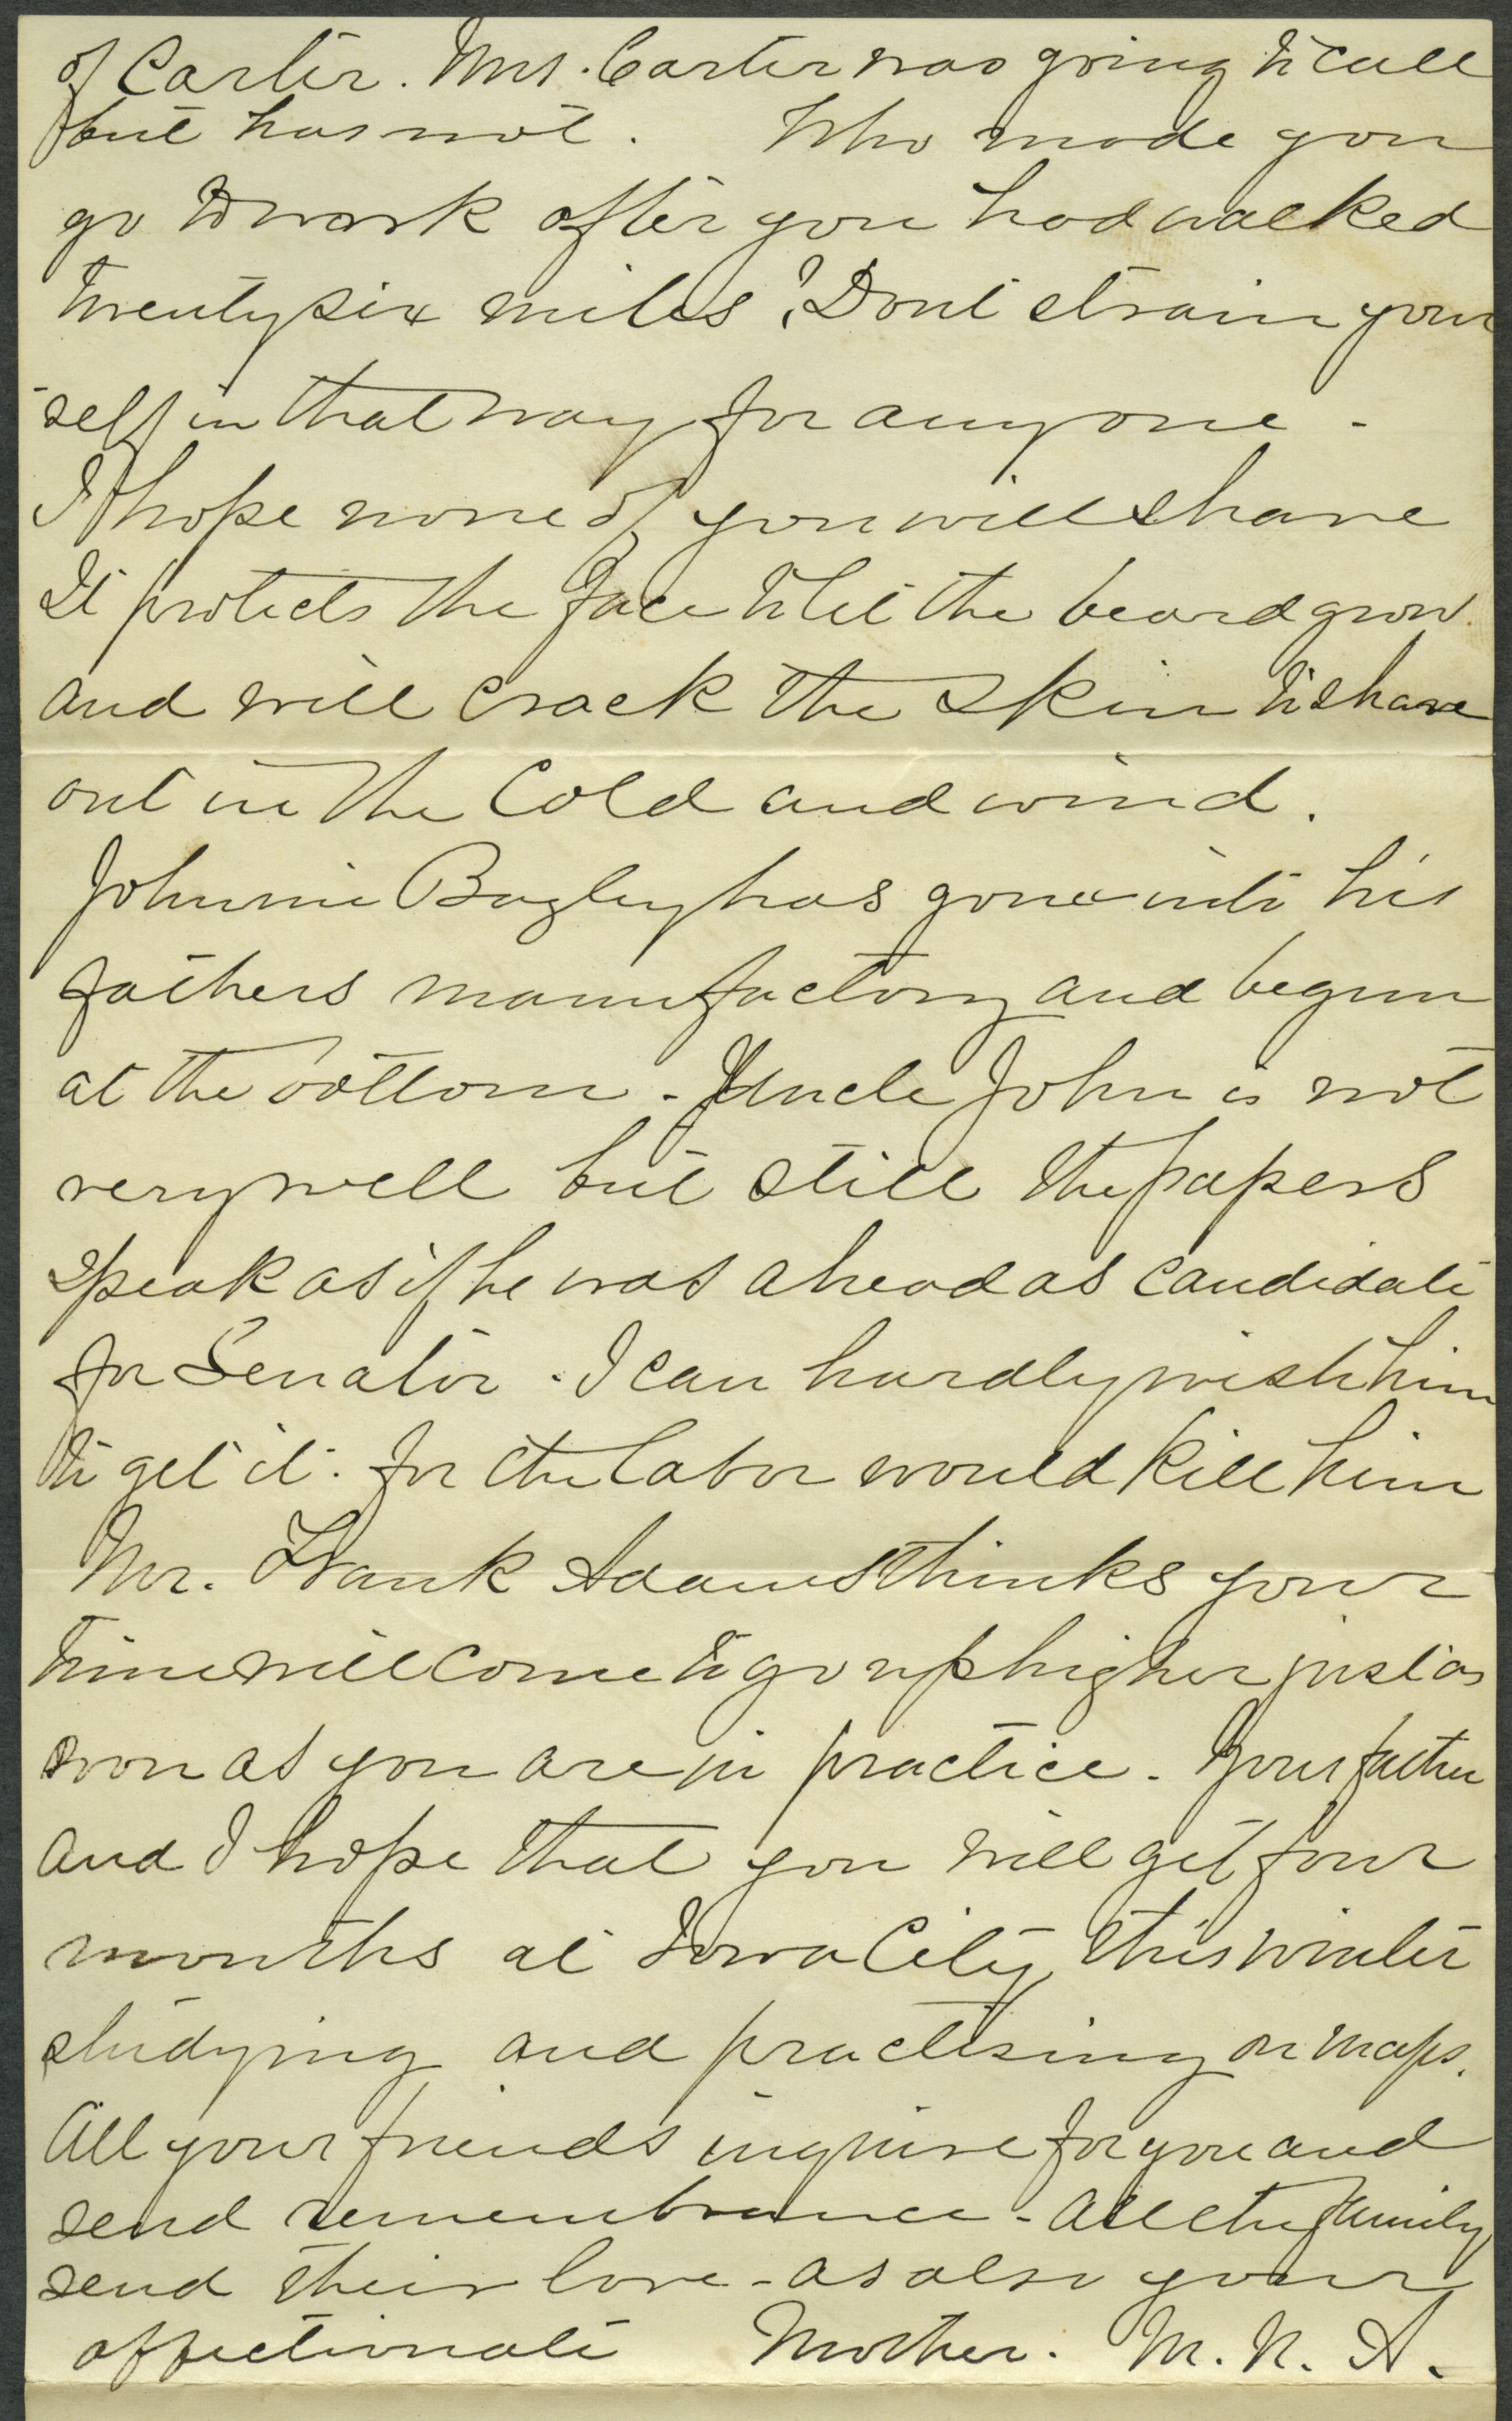 of Carter. Mrs. Carter was going to call
but has not. Who made you
go to work after you had walked
twenty six miles? Dont strain your
self in that way for anyone -
I hope none of you will shave
It protects the face to let the beard grow
and will crack the skin to shave
out in the Cold and wind.
Johnnie Bagley has gone into his
fathers manufactory and begun
at the bottom - Uncle John is not
very well but still the papers
speak as if he was ahead as candidate
for Senator - I can hardly wish him
to get it. for the labor would kill him
Mr. Frank Adams thinks your
time will come to go up higher just as
soon as you are in practice. Your father
and I hope that you will get four
months at Iowa City, this winter
studying and practising on maps.
All your friends inquire for you and
send remembrance - All the family
send their love - as also your
affectionate Mother. M. N. A.